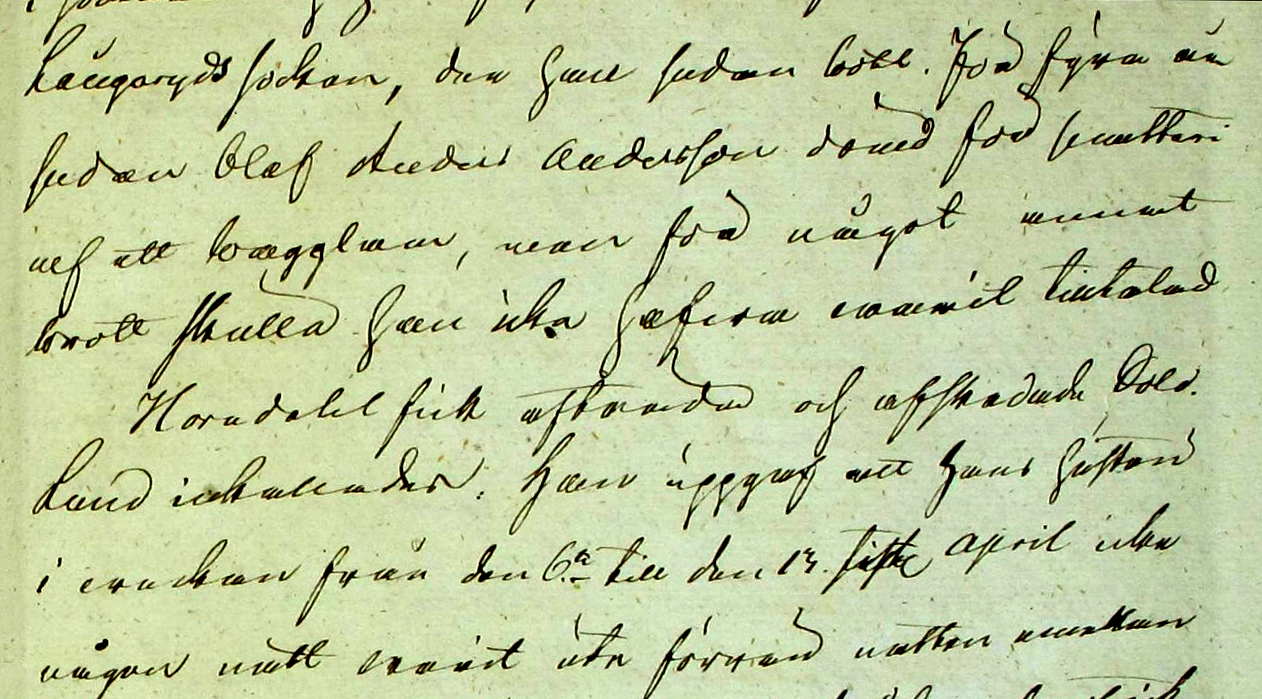 Långaryds socken, der han sedan bott. För fyra år
sedan blef Anders Andersson dömd för snatteri
af ett bräggham, men för något annat
brott skulle han icke hafva varit tilltalad
Horndahl fick afträda och afskedade Sold.
Lund inkallades. Han uppgaf att hans hästar
i veckan från den 6te till den 13 siste April icke
någon natt varit ute förrän natten emellan